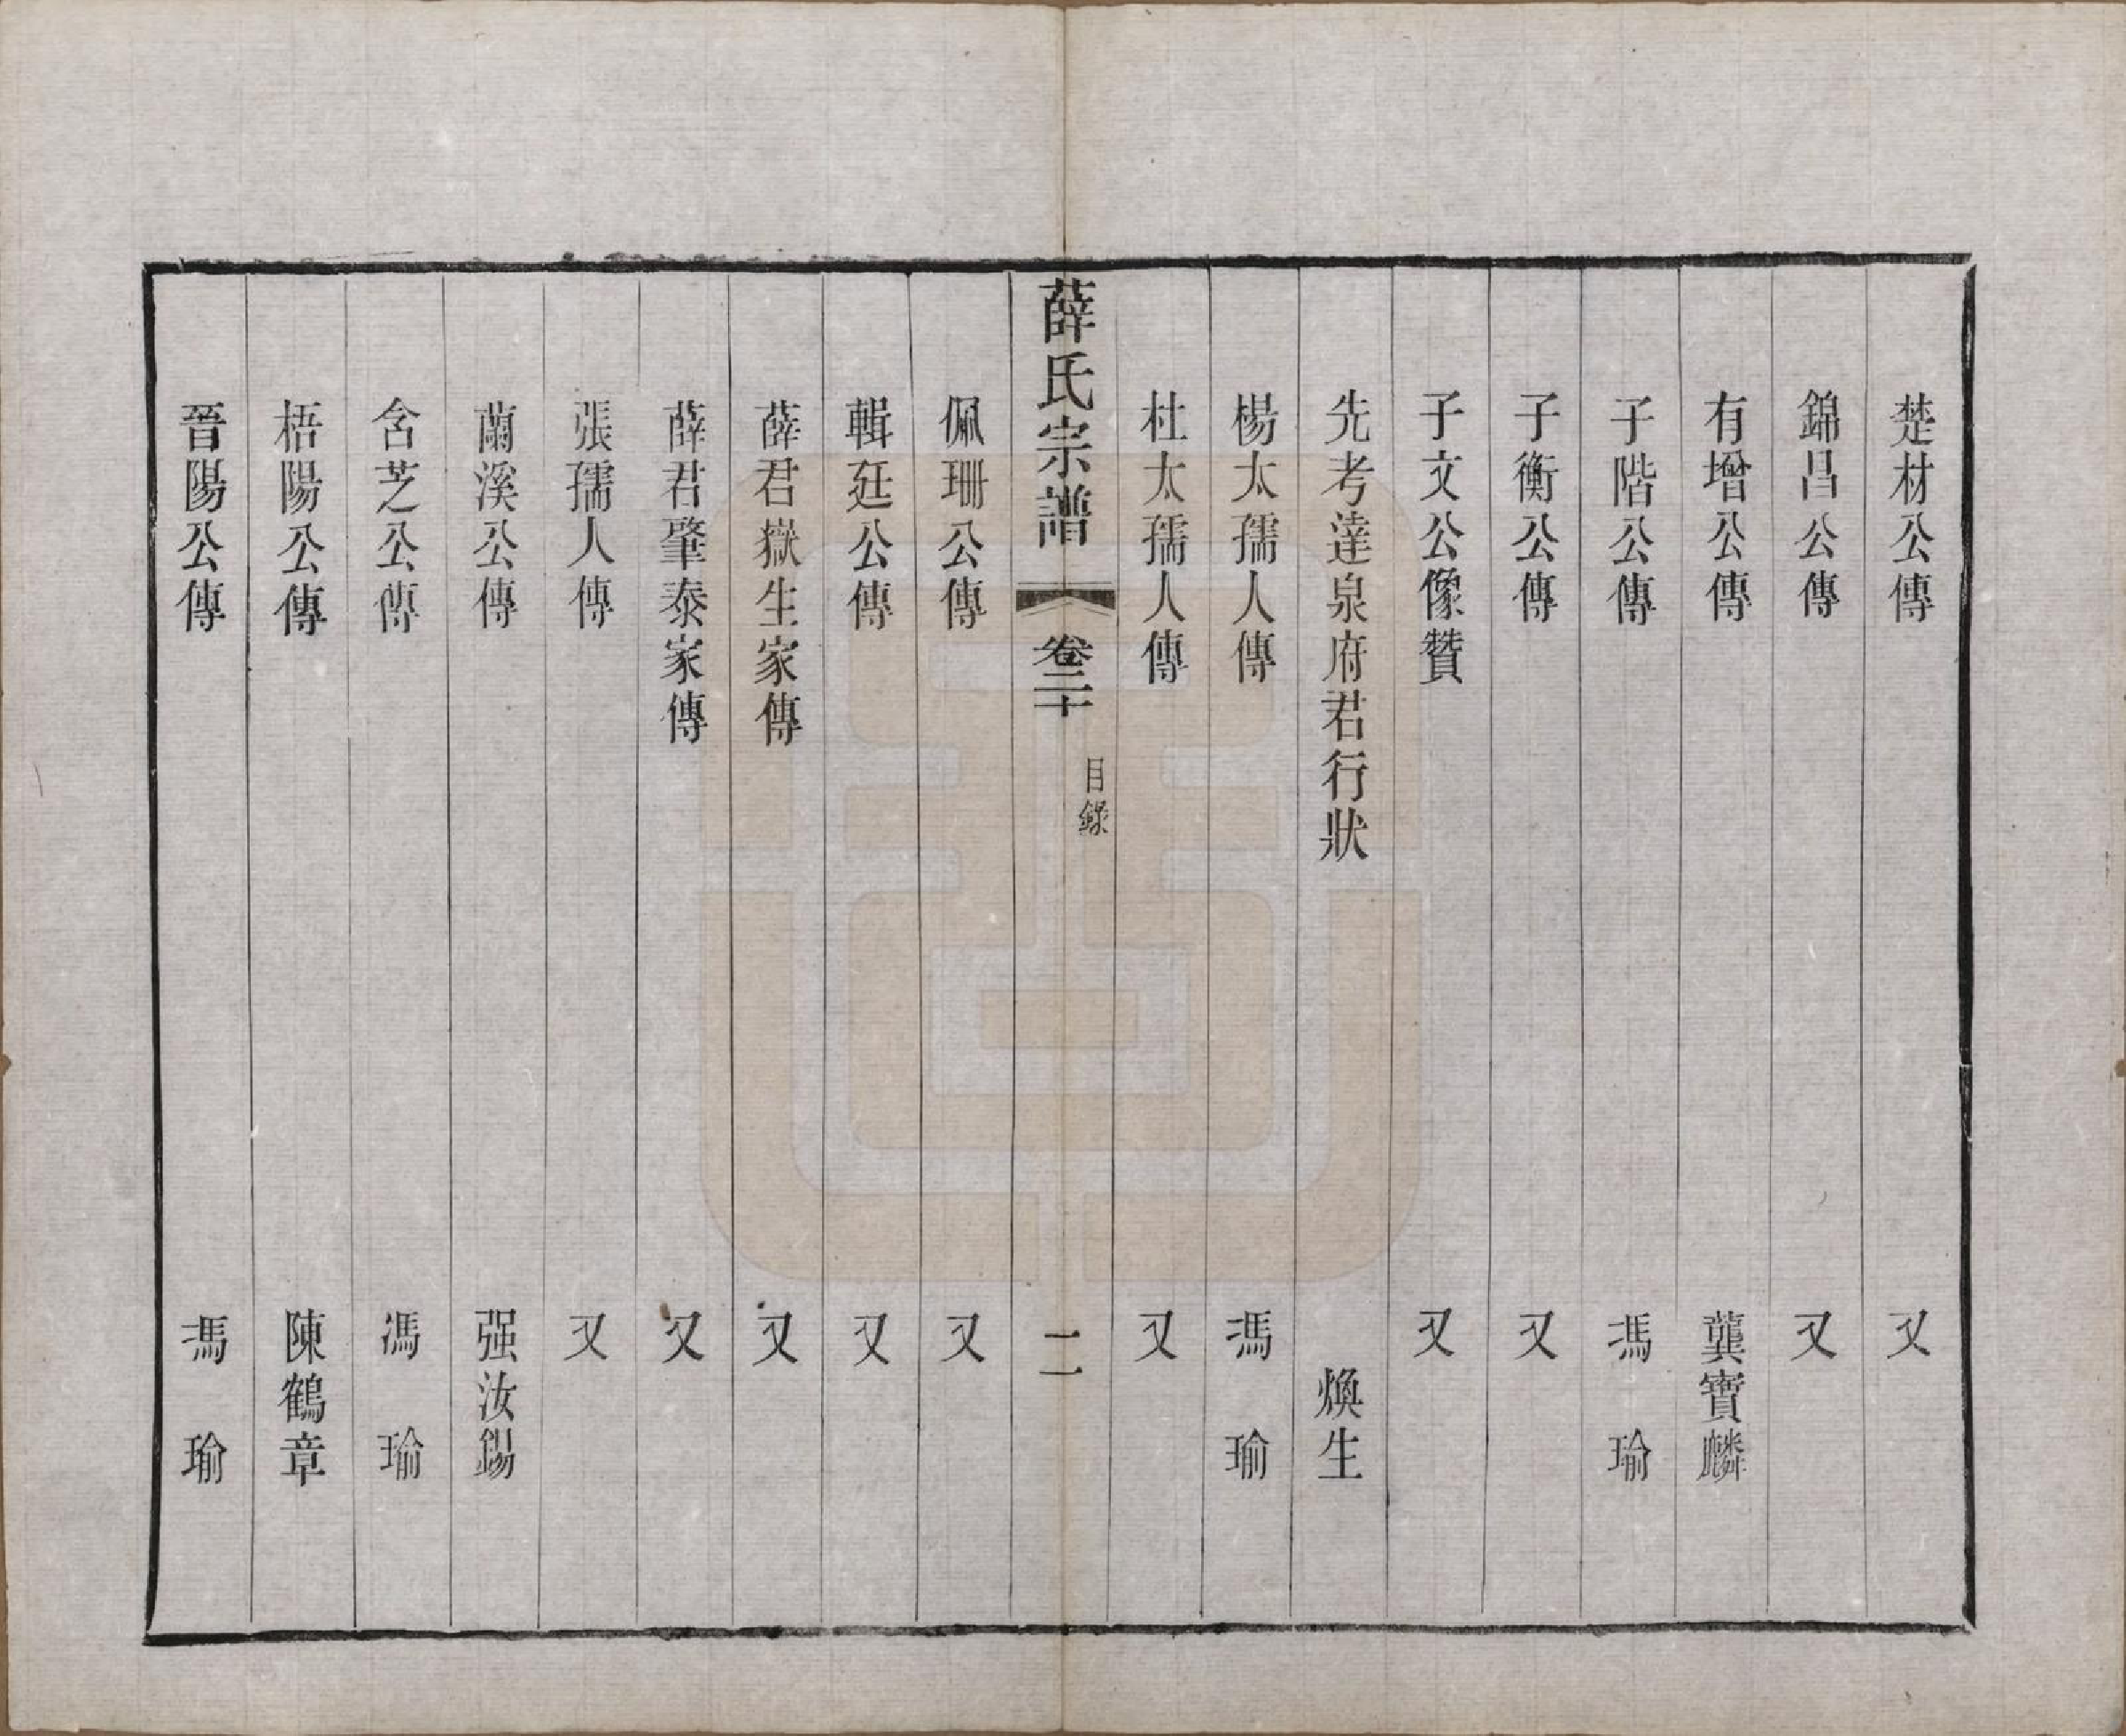 楚材公傳 又
錦昌公傳 又
有增公傳 龔寶麟
子階公傳 馮瑜
子衡公傳 又
子文公像贊 又
先考達泉府君行狀 煥生
楊太孺人傳 馮瑜
杜太孺人傳 又
薛氏宗譜 卷二十 目錄 二
佩珊公傳 又
輯廷公傳 又
薛君嶽生家傳 又
薛君肇泰家傳 又
張孺人傳 又
蘭溪公傳 强汝錫
含芝公傳 馮瑜
梧陽公傳 陳鶴章
晉陽公傳 馮瑜